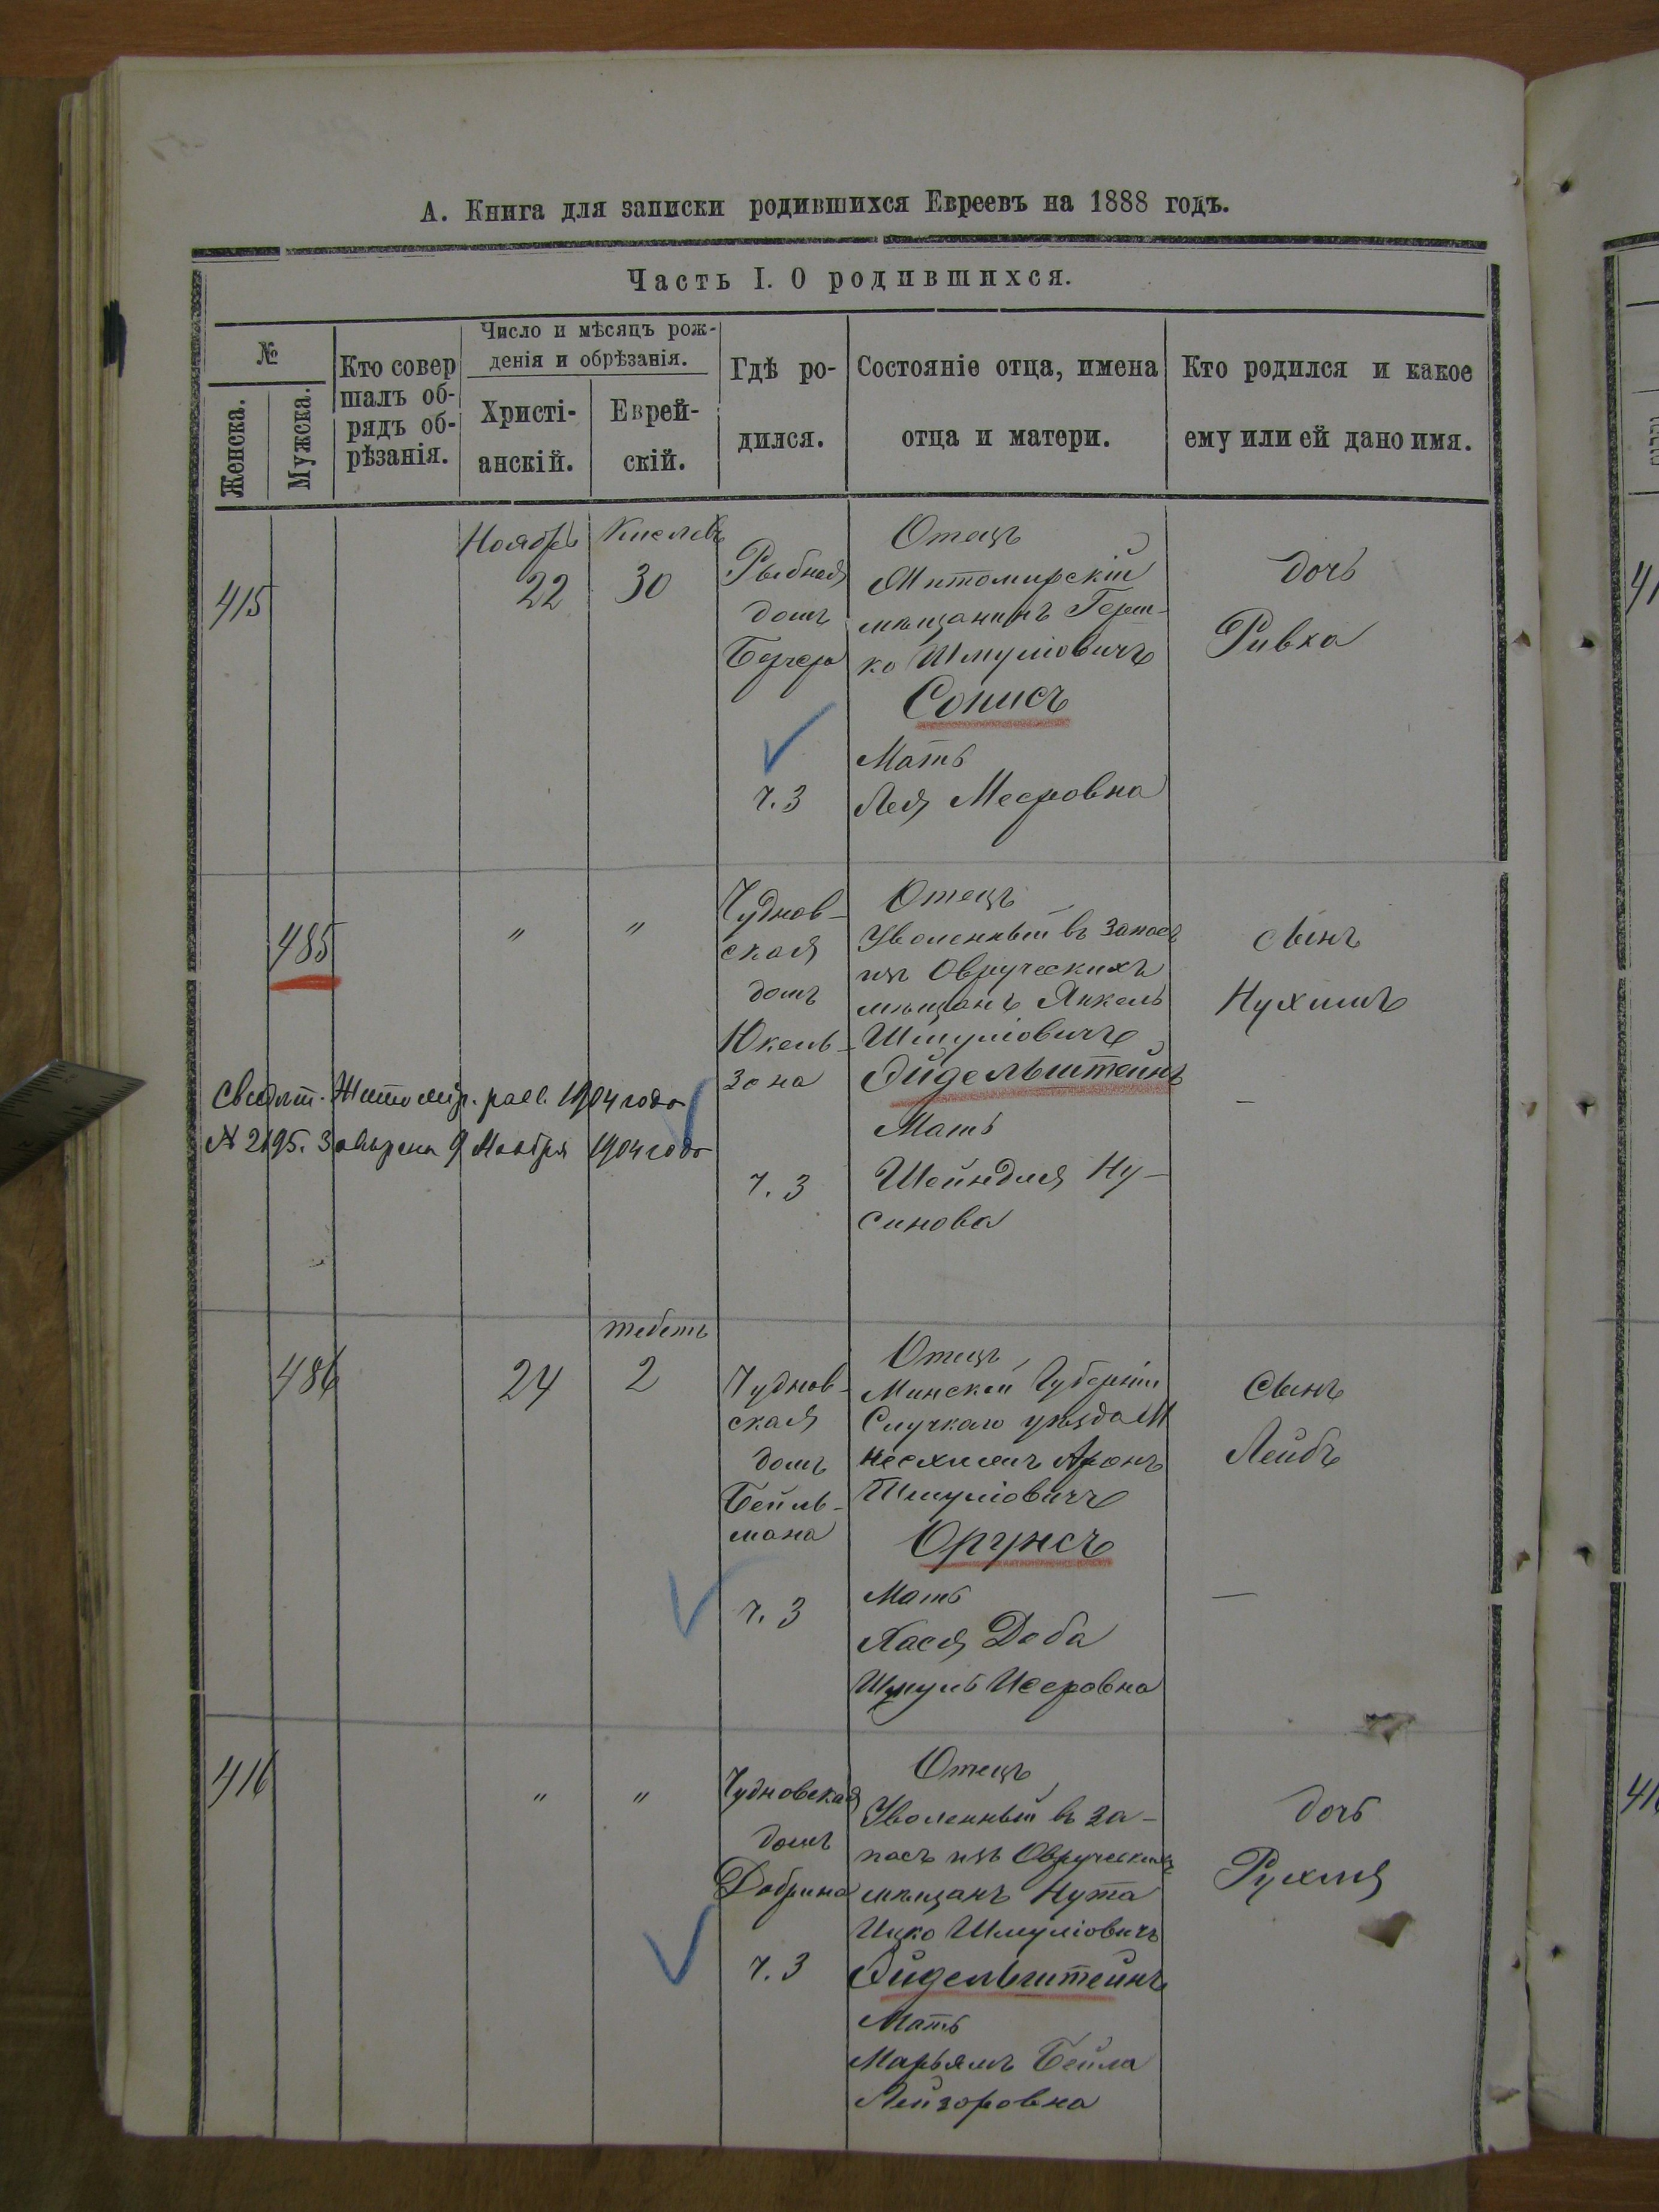 А. Книга для записки родившихся Евреевъ на 1888 годъ.
Часть I. О родившихся.
№
Женска.
Мужска.
Кто совер
шалъ об-
рядъ об-
рѣзанія.
Число и мѣсяцъ рож-
денія и обрѣзанія.
Христі-
анскій.
Еврей-
скій.
Гдѣ ро-
дился.
Состояніе отца, имена
отца и матери.
Кто родился и какое
ему или ей дано имя.
415
Ноябрь
22
Кислевъ
30
Рыбная
домъ
ч. 3
Отецъ
Житомирскій
мѣщанинъ Герш-
ко Шмуліовичъ
Сописъ
Мать
Лея Мееровна
дочь
Ривка
485
"
"
Чуднов-
ская
домъ
Юкель-
зона
ч. 3
Отецъ
Уволенный въ запасъ
изъ Овручскихъ
мѣщанъ Янкель
Шмуліовичъ
Эйдельштейнъ
Мать
Шейндля Ну-
синова
сынъ
Нухимъ
—
Свидѣт. Житомір. 1904 года
№ 2195. 9 Ноября 1904 года
486
24
тебетъ
2
Чуднов-
ская
домъ
Бейль-
мана
ч. 3
Отецъ
Минской Губерніи
Слуцкаго уѣзда М
Аронъ
Шмуліовичъ
Оргунсъ
Мать
Хася Доба
Шмуль Исеровна
сынъ
Лейбъ
—
416
"
"
Чудновская
домъ
Добрина
ч. 3
Отецъ
Уволенный въ за-
пасъ изъ Овручскихъ
мѣщанъ Нута
Ицко Шмуліовичъ
Эйдельштейнъ
Мать
Марьямъ Бейла
Лейзоровна
дочь
Рухля